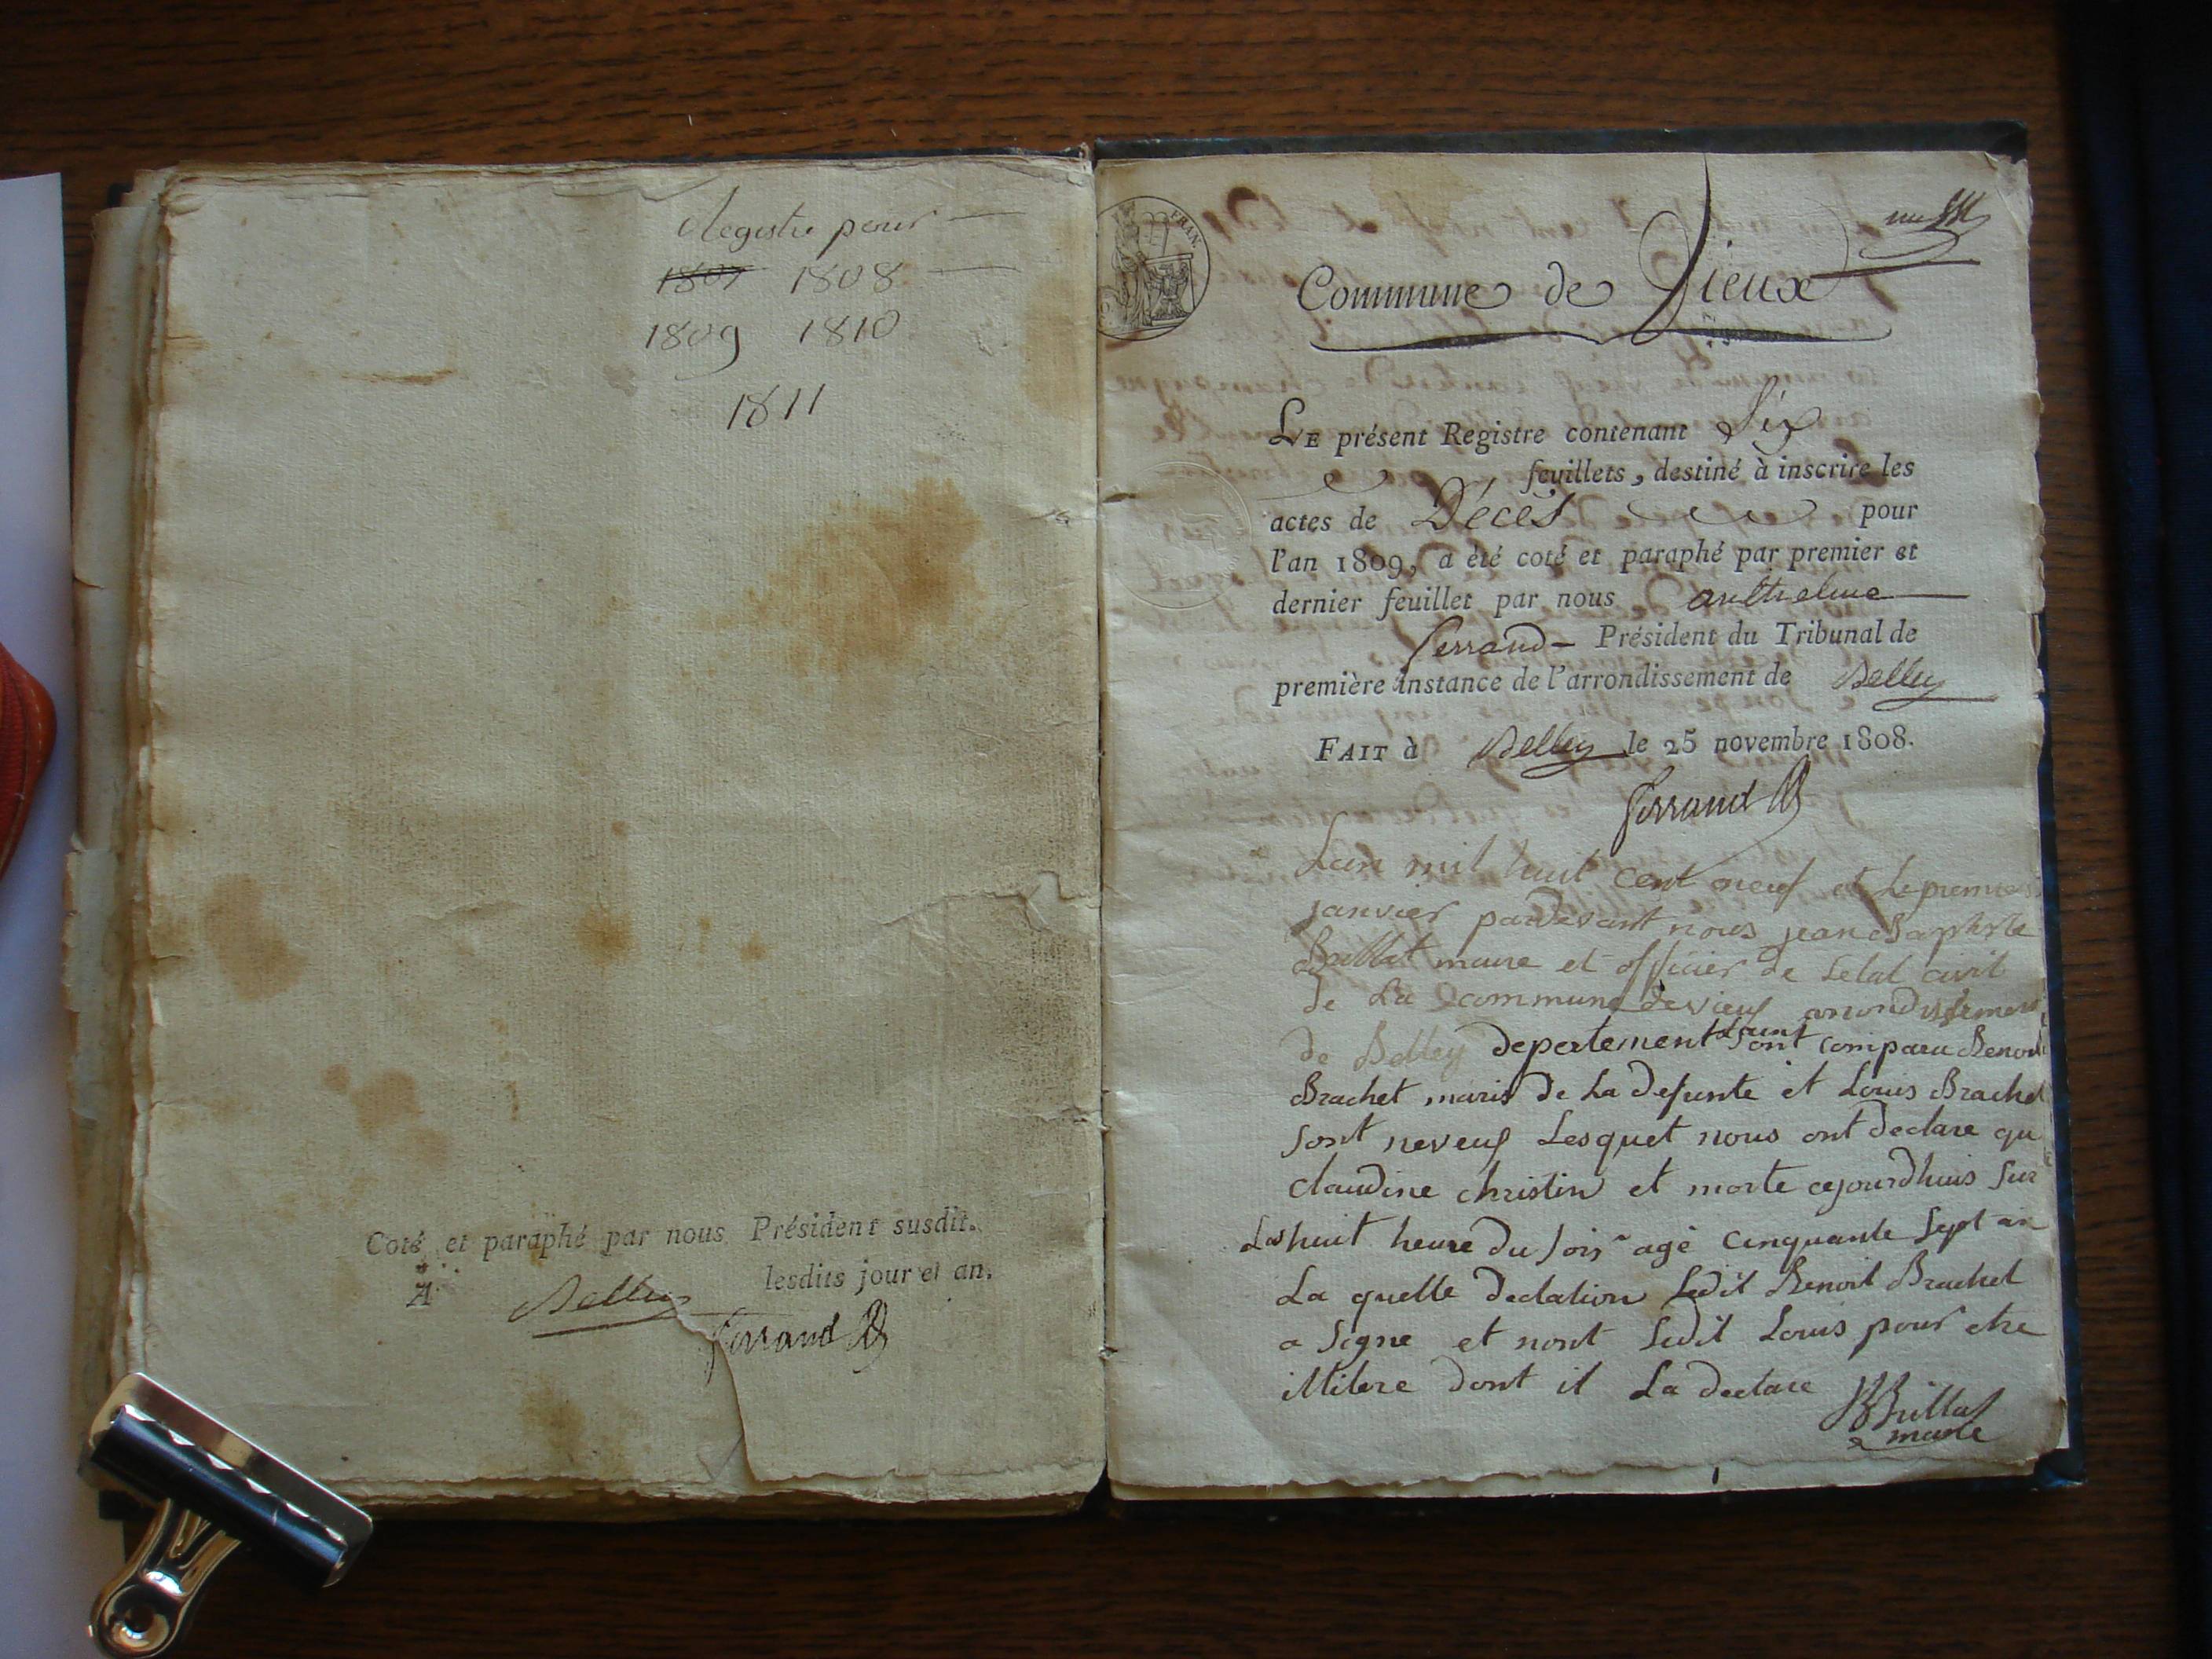 Registre pour
1807 1808
1809 1810
1811
Coté et paraphé par nous Président susdit.
A Belley lesdits jour et an.
Ferrand
FRAN
Commune de Vieux
LE présent Registre contenant Six
feuillets, destiné à inscrire les
actes de Décès pour
l'an 1809, a été coté et paraphé par premier et
dernier feuillet par nous anthelme
ferrand Président du Tribunal de
première instance de l'arrondissement de Belley
FAIT à Belley le 25 novembre 1808.
ferrand
Lan mil huit cent neuf et Le premier
janvier pardevant nous jean Baptiste
Brillat maire et officier de Letat civil
de La commune devieuf arrondissement
de Belley departement Lain sont comparu Benoit
Brachet maris de La defunte et Louis Brachet
sont neveuf Lesquet nous ont declare qu
claudine christin et morte cejourdhuis sur
Las huit heure du soir age cinquante sept an
La quelle declation Ledit Benoit Brachet
a signe et nont Ledit Louis pour etre
illitere dont il La declare
JBBrillat
maire